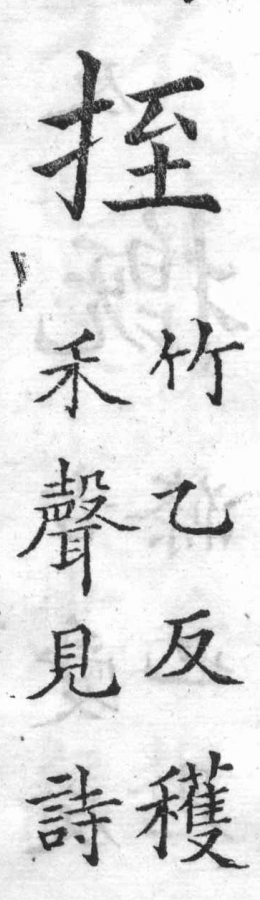 挃
竹乙反穫
禾聲見詩